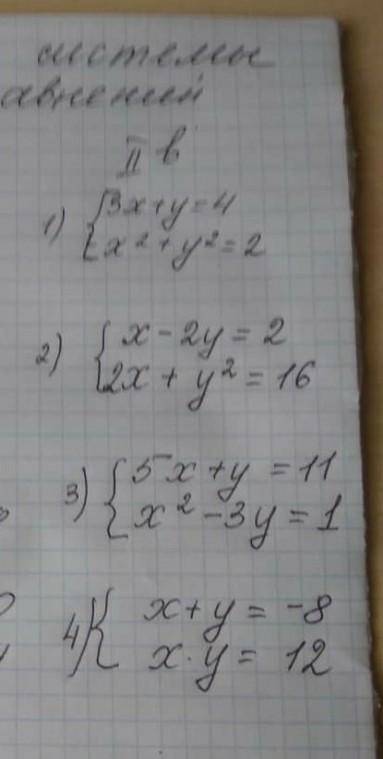 системы
авнений
II в
1) { 3x+y=4
x²+y²=2
2) { x-2y=2
2x+y²=16
3) { 5x+y=11
x²-3y=1
4) { x+y=-8
x·y=12